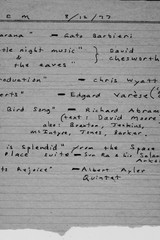 C M 8/12/77
arana" — Gato Barbieri
tle night music" } David
& Chesworth
the eaves"
raduation" — Chris Wyatt
erts" — Edgard Varèse (
Bird Song" — Richard Abram
(feat: David Moore,
also: Braxton, Jenkins,
McIntyre, Jones, Barker,
is Splendid" from the Space
Place suite — Sun Ra & his Solar
Arkes
ts Rejoice" — Albert Ayler
Quintet